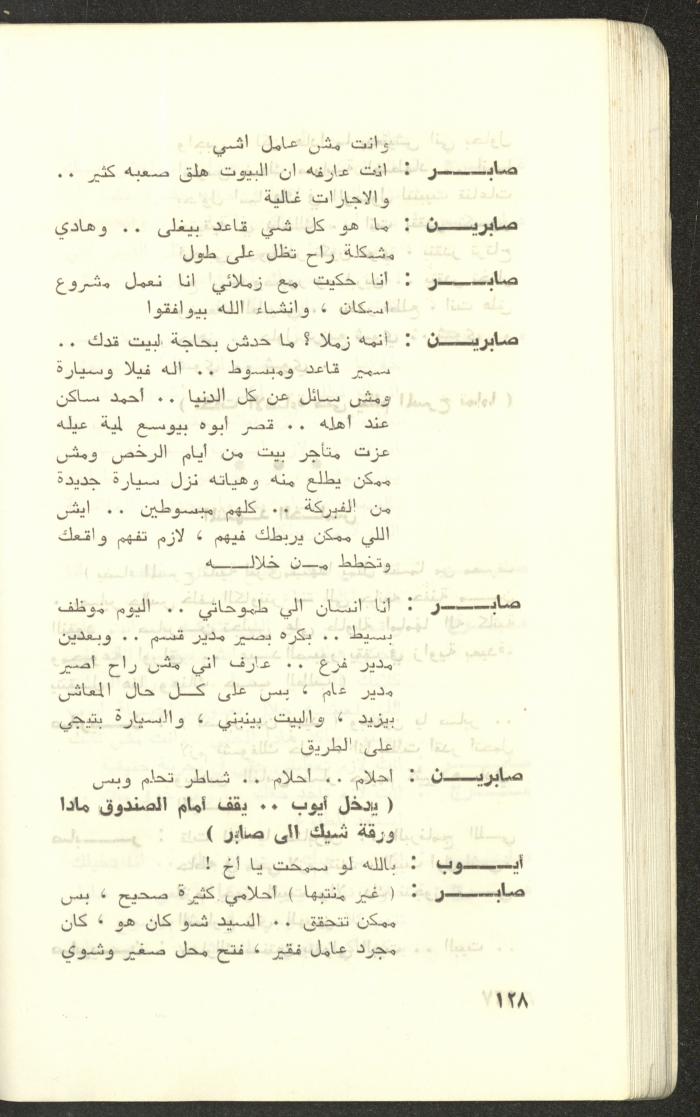 وانت مش عامل اشي
صابـــــر : انت عارفه ان البيوت هلق صعبه كثير ..
والاجارات غالية
صابريـــن : ما هو كل شي قاعد بيغلى .. وهادي
مشكلة راح تظل على طول
صابـــــر : انا حكيت مع زملائي انا نعمل مشروع
اسكان ، وانشاء الله بيوافقوا
صابريـــن : انمه زملا ؟ ما حدش بحاجة لبيت قدك ..
سمير قاعد ومبسوط .. اله فيلا وسيارة
ومش سائل عن كل الدنيا .. أحمد ساكن
عند أهله .. قصر ابوه بيوسع لمية عيله
عزت متأجر بيت من أيام الرخص ومش
ممكن يطلع منه وهياته نزل سيارة جديدة
من الفبركة .. كلهم مبسوطين .. ايش
اللي ممكن يربطك فيهم ، لازم تفهم واقعك
وتخطط مــن خلالـــه
صابـــــر : انا انسان الي طموحاتي .. اليوم موظف
بسيط .. بكره بصير مدير قسم .. وبعدين
مدير فرع .. عارف اني مش راح اصير
مدير عام ، بس على كــل حال المعاش
بيزيد ، والبيت بينبني ، والسيارة بتيجي
على الطريق
صابريـــن : احلام .. أحلام .. شاطر تحلم وبس
( يدخل أيوب .. يقف أمام الصندوق مادا
ورقة شيك الى صابر )
أيـــــوب : بالله لو سمحت يا أخ !
صابـــــر : ( غير منتبها ) أحلامي كثيرة صحيح ، بس
ممكن تتحقق .. السيد شو كان هو ، كان
مجرد عامل فقير ، فتح محل صغير وشوي
١٢٨